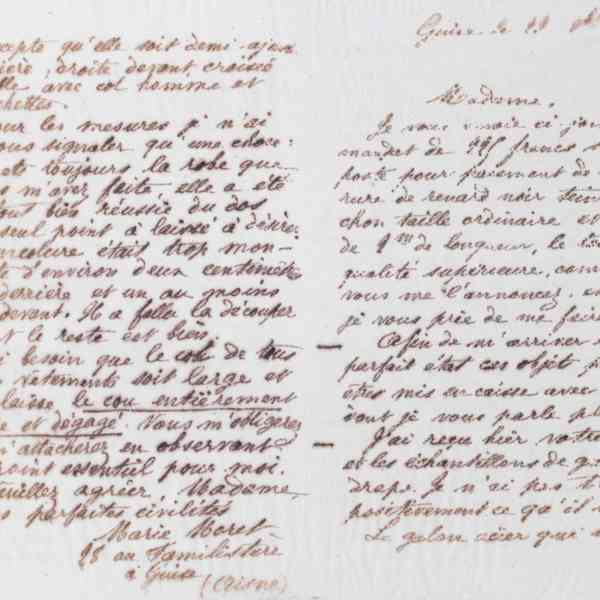 cepte qu'elle soit demi-ajus
ière, droite devant, croisée
lle avec col homme et
chettes.
our les mesures je n'ai
ous signaler qu'une chose:
ets toujours la robe que
s m'avez faite elle a été
tout bien réussie du dos
seul point a laissé à désirer
encolure était trop mon-
te d'environ deux centimètres
derrière et un au moins
devant. Il a fallu la découper
et le reste est bien
i besoin que le col de tous
vêtements soit large et
laisse le cou entièrement
e et dégagé. Vous m'obligerez
m'attacherez en observant
point essentiel pour moi.
euillez agréer, Madame,
s parfaites civilités
Marie Moret
28 au Familistère
à Guise
(Aisne)
Guise le
Madame,
Je vous envoie ci-joi
mandat de francs s
poste pour paiement de
rure de renard noir
chon taille ordinaire et
de 2 m de longueur, le
qualité supérieure, com
vous me l'annoncez, e
je vous prie de me faire
Afin de m'arriver
parfait état ces objets
être mis en caisse avec
dont je vous parle pl
J'ai reçu hier votre
et les échantillons de
draps. Je n'ai pas t
positivement ce qu'il
Le galon acier qui